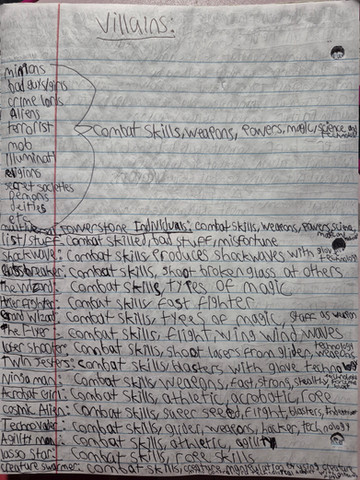 Villains:
minions
bad guys/girls
crime lords
Aliens
terrorist
Combat skills, weapons, powers, magic, science and technology
mob
illuminati
religions
secret societes
Demons
deities
etc
Powerstone Individuals: combat skills, weapons, powers, science
list/stuff: combat skilled, bad stuff, misfortune
shockwave: combat skills, produces shockwaves with glove technology
Glassbreaker: combat skills, shoot broken glass at others
the wizard: combat skills, types of magic
fighter: combat skills, fast fighter
Grand wizard: combat skills, types of magic, staff as weapon
The Flyer: combat skills, flight, wing wind waves
laser shooter: combat skills, shoot lasers from glider, technology weapons
Twin Jesters: combat skills, blasters with glove technology
Ninja man: combat skills, weapons, fast, strong, stealthy
Acrobat Girl: combat skills, athletic, acrobatic, rope
Cosmic Alien: combat skills, super speed, flight, blasters,
Technovader: combat skills, glider, weapons, hacker, technology
Agility man: combat skills, athletic, agility
lasso star: combat skills, rope skills
creature swarmer: combat skills, creature manipulation